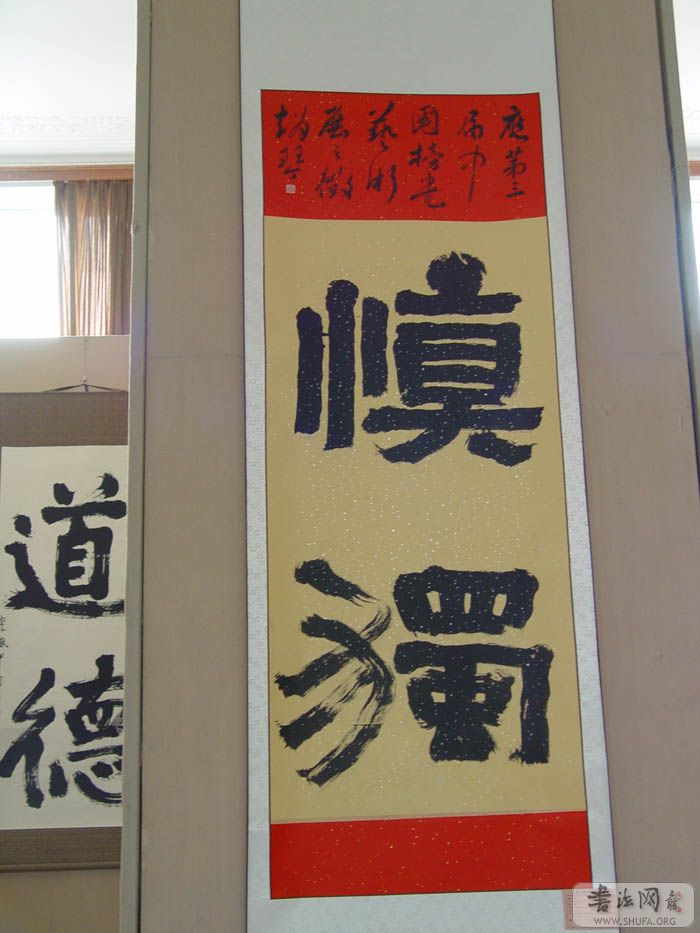 应第三
届中
国榜书
艺术
展之徵
慎
獨
道
德
書法网
WWW.SHUFA.ORG